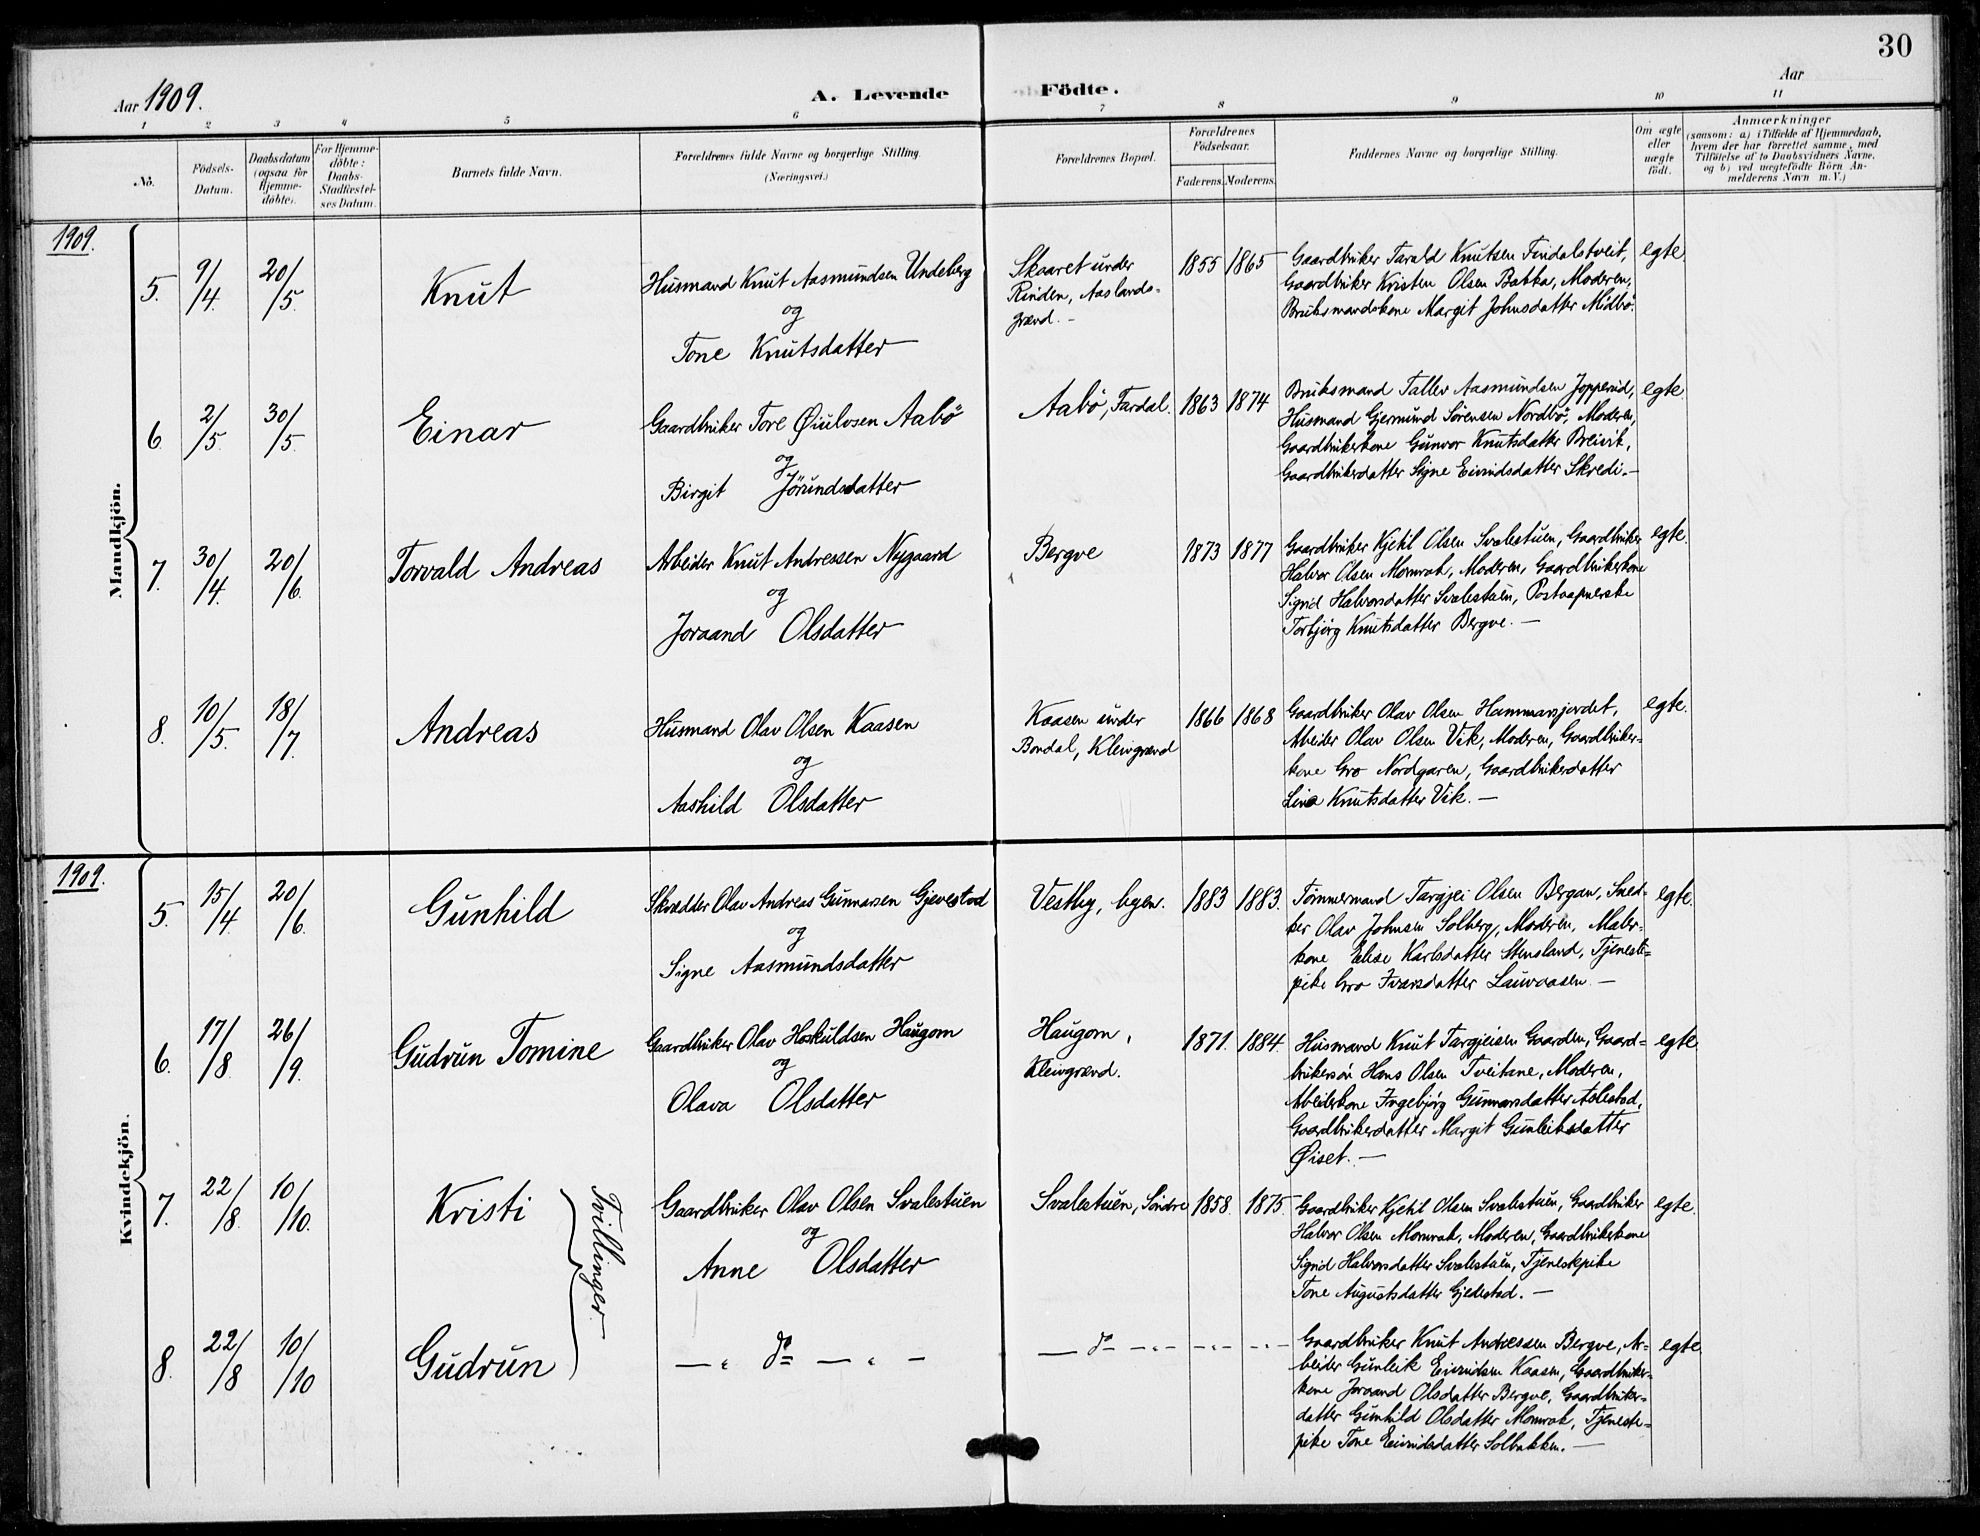 30
Aar 1909.
A. Levende Födte.
Aar
1 2 3 4 5 6 7 8 9 10 11
No.
Födsels-
Datum.
Daabsdatum
(ogsaa for
Hjemme-
döbte).
For Hjemme-
döbte:
Daabs-
Stadfæstel-
ses Datum.
Barnets fulde Navn.
Forældrenes fulde Navne og borgerlige Stilling.
(Næringsvei.)
Forældrenes Bopæl.
Forældrenes
Födselsaar.
Faderens. Moderens.
Faddernes Navne og borgerlige Stilling.
Om ægte
eller
uægte
født.
Anmærkninger
(saasom: a) i Tilfælde af Hjemmedaab,
hvem der har forrettet samme, med
Tilføielse af to Daabsvidners Navne,
og b) ved uægtefødte Börn An-
melderens Navn m. V.)
1909.
Mandkjön.
5. 9/4. 20/5. Knut
Husmand Knut Aasmundsen Undeberg
og
Tone Knutsdatter
Skaaret under
Rinden, Aaslands-
grænd.
1855 1865
Gaardbruker Tarald Knutsen Findalstveit,
Gaardbruker Kristen Olsen Bakka, Moderen,
Bruksmandskone Margit Johnsdatter Midbö.
egte
6. 2/5. 30/5. Einar
Gaardbruker Tore Øiulvsen Aabö
og
Birgit Jörundsdatter
Aabö, Fardal.
1863 1874
Bruksmand Tallev Aasmundsen Jopperud,
Husmand Gjermund Sørensen Nordbö, Moderen,
Gaardbrukerkone Gunvor Knutsdatter Breivik,
Gaardbrukerdatter Signe Eivindsdatter Skredi.
egte
7. 30/4. 20/6. Torvald Andreas
Arbeider Knut Andressen Nygaard
og
Joraand Olsdatter
Bergve
1873 1877
Gaardbruker Kjetil Olsen Svalestuen, Gaardbruker
Halvor Olsen Momrak, Moderen, Gaardbrukerkone
Sigrid Halvorsdatter Svalestuen, Postaapnerske
Torbjörg Knutsdatter Bergve.
egte.
8. 10/5. 18/7. Andreas
Husmand Olav Olsen Kaasen
og
Aashild Olsdatter
Kaasen under
Bondal, Kleivgrænd
1866 1868
Gaardbruker Olav Olsen Hammarsjordet,
Arbeider Olav Olsen Vik, Moderen, Gaardbruker-
kone Gro Nordgaren, Gaardbrukerdatter
Lina Knutsdatter Vik.
egte.
1909.
Kvindekjön.
5. 15/4. 20/6. Gunhild
Skrædder Olav Andreas Gunnarsen Gjevestad
og
Signe Aasmundsdatter
Vestby, byen.
1883 1883.
Tømmermand Targjei Olsen Bergan, Sned-
ker Olav Johnsen Solberg, Moderen, Maler-
kone Elise Karlsdatter Stensland, Tjeneste-
pike Gro Ivarsdatter Lauvaasen.
egte.
6. 17/8. 26/9. Gudrun Tomine
Gaardbruker Olav Hoskuldsen Haugom
og
Olava Olsdatter
Haugom,
Kleivgrænd.
1871. 1884.
Husmand Knut Targjeisen Gaarden, Gaard-
brukersön Hans Olsen Tveitane, Moderen,
Arbeiderkone Ingebjörg Gunnarsdatter Aslestad,
Gaardbrukerdatter Margit Gunleiksdatter
Øiset.
egte
7. 22/8. 10/10. Kristi
Tvillinger.
Gaardbruker Olav Olsen Svalestuen
og
Anne Olsdatter
Svalestuen, Söndre
1858. 1875.
Gaardbruker Kjetil Olsen Svalestuen, Gaardbruker
Halvor Olsen Momrak, Moderen, Gaardbrukerkone
Sigrid Halvorsdatter Svalestuen, Tjenestepike
Tone Augustsdatter Gjelestad.
egte.
8. 22/8 10/10 Gudrun
do
do
Gaardbruker Knut Andressen Bergve, Ar-
beider Gunleik Eivindsen Kaasen, Gaardbruker-
kone Joraand Olsdatter Bergve, Gaardbruker-
datter Gunhild Olsdatter Momrak, Tjeneste-
pike Tone Eivindsdatter Solbakken.
egte.